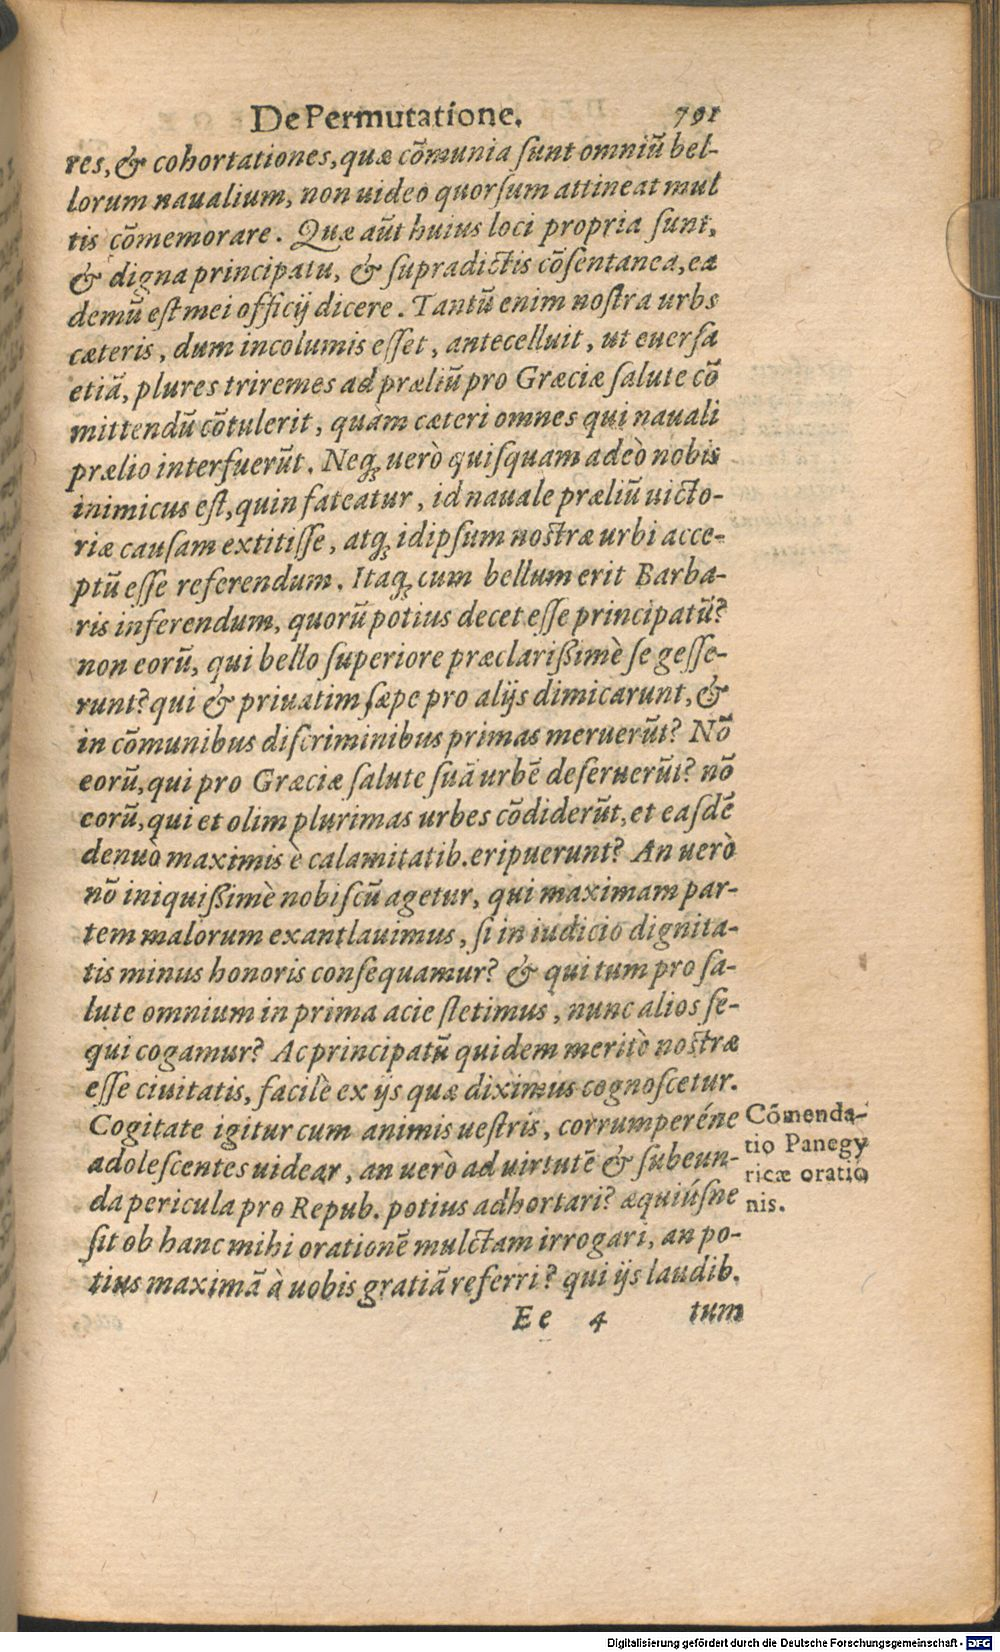 De Permutatione. 791
res, & cohortationes, quæ cõmunia sunt omniũ bel-
lorum naualium, non uideo quorsum attineat mul
tis cõmemorare. Quæ aũt huius loci propria sunt,
& digna principatu, & supradictis cõsentanea, ea
demũ est mei officij dicere. Tantũ enim nostra urbs
cæteris, dum incolumis esset, antecelluit, ut euersa
etiã, plures triremes ad præliũ pro Græciæ salute cõ
mittendũ cõtulerit, quàm cæteri omnes qui nauali
prælio interfuerũt. Neq; uerò quisquam adeò nobis
inimicus est, quin fateatur, id nauale præliũ uicto-
riæ causam extitisse, atq; idipsum nostræ urbi acce-
ptũ esse referendum. Itaq; cum bellum erit Barba-
ris inferendum, quorũ potius decet esse principatũ?
non eorũ, qui bello superiore præclarißimè se gesse-
runt? qui & priuatim sæpe pro alijs dimicarunt, &
in cõmunibus discriminibus primas meruerũt? Nõ
eorũ, qui pro Græciæ salute suã urbẽ deseruerũt? nõ
eorũ, qui et olim plurimas urbes cõdiderũt, et easdẽ
denuò maximis è calamitatib. eripuerunt? An uerò
nõ iniquißimè nobiscũ agetur, qui maximam par-
tem malorum exantlauimus, si in iudicio dignita-
tis minus honoris consequamur? & qui tum pro sa-
lute omnium in prima acie stetimus, nunc alios se-
qui cogamur? Ac principatũ quidem meritò nostræ
esse ciuitatis, facilè ex ijs quæ diximus cognoscetur.
Cogitate igitur cum animis uestris, corrumperéne
adolescentes uidear, an uerò ad uirtutẽ & subeun-
da pericula pro Repub. potius adhortari? æquiúsne
sit ob hanc mihi orationẽ mulctam irrogari, an po-
tius maximã à uobis gratiã referri? qui ijs laudib.
Ee 4 tum
Cõmenda-
tio Panegy
ricæ oratio
nis.
Digitalisierung gefördert durch die Deutsche Forschungsgemeinschaft - DFG